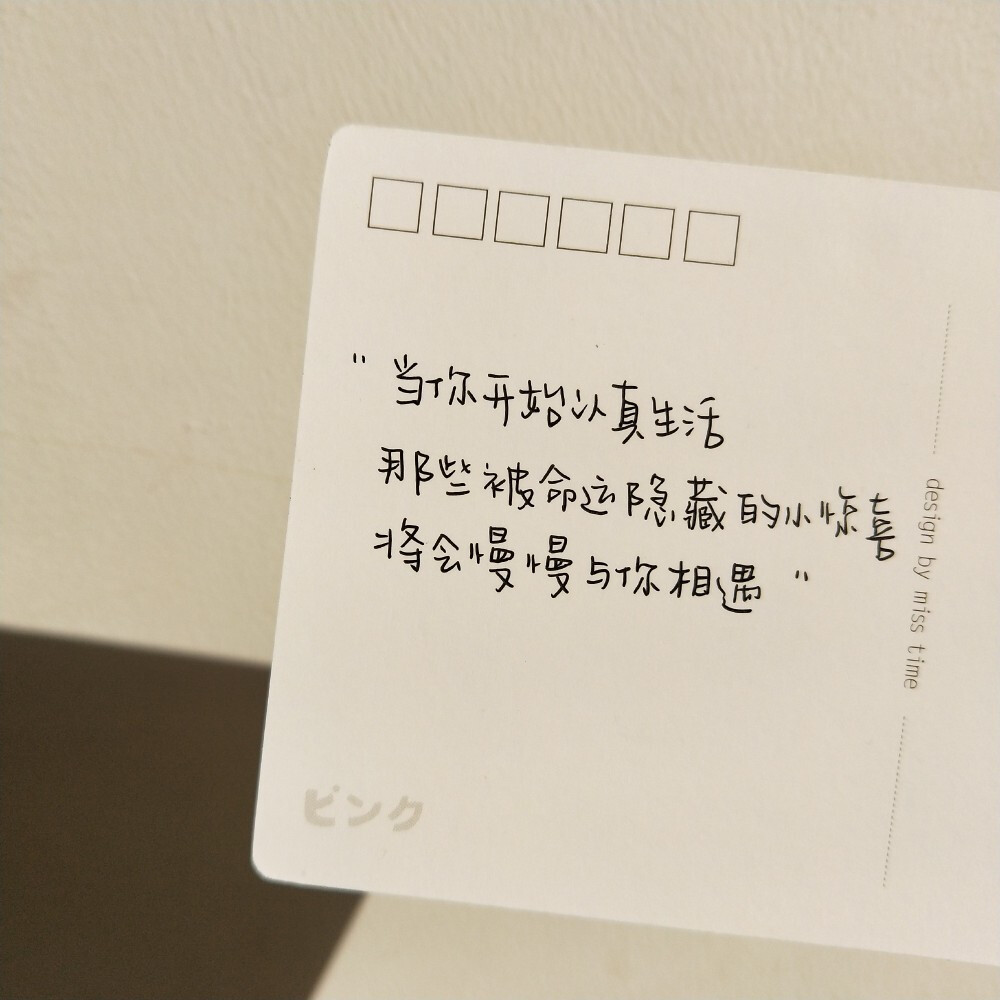 "当你开始认真生活
那些被命运隐藏的小惊喜
将会慢慢与你相遇"
design by miss time
ピンク